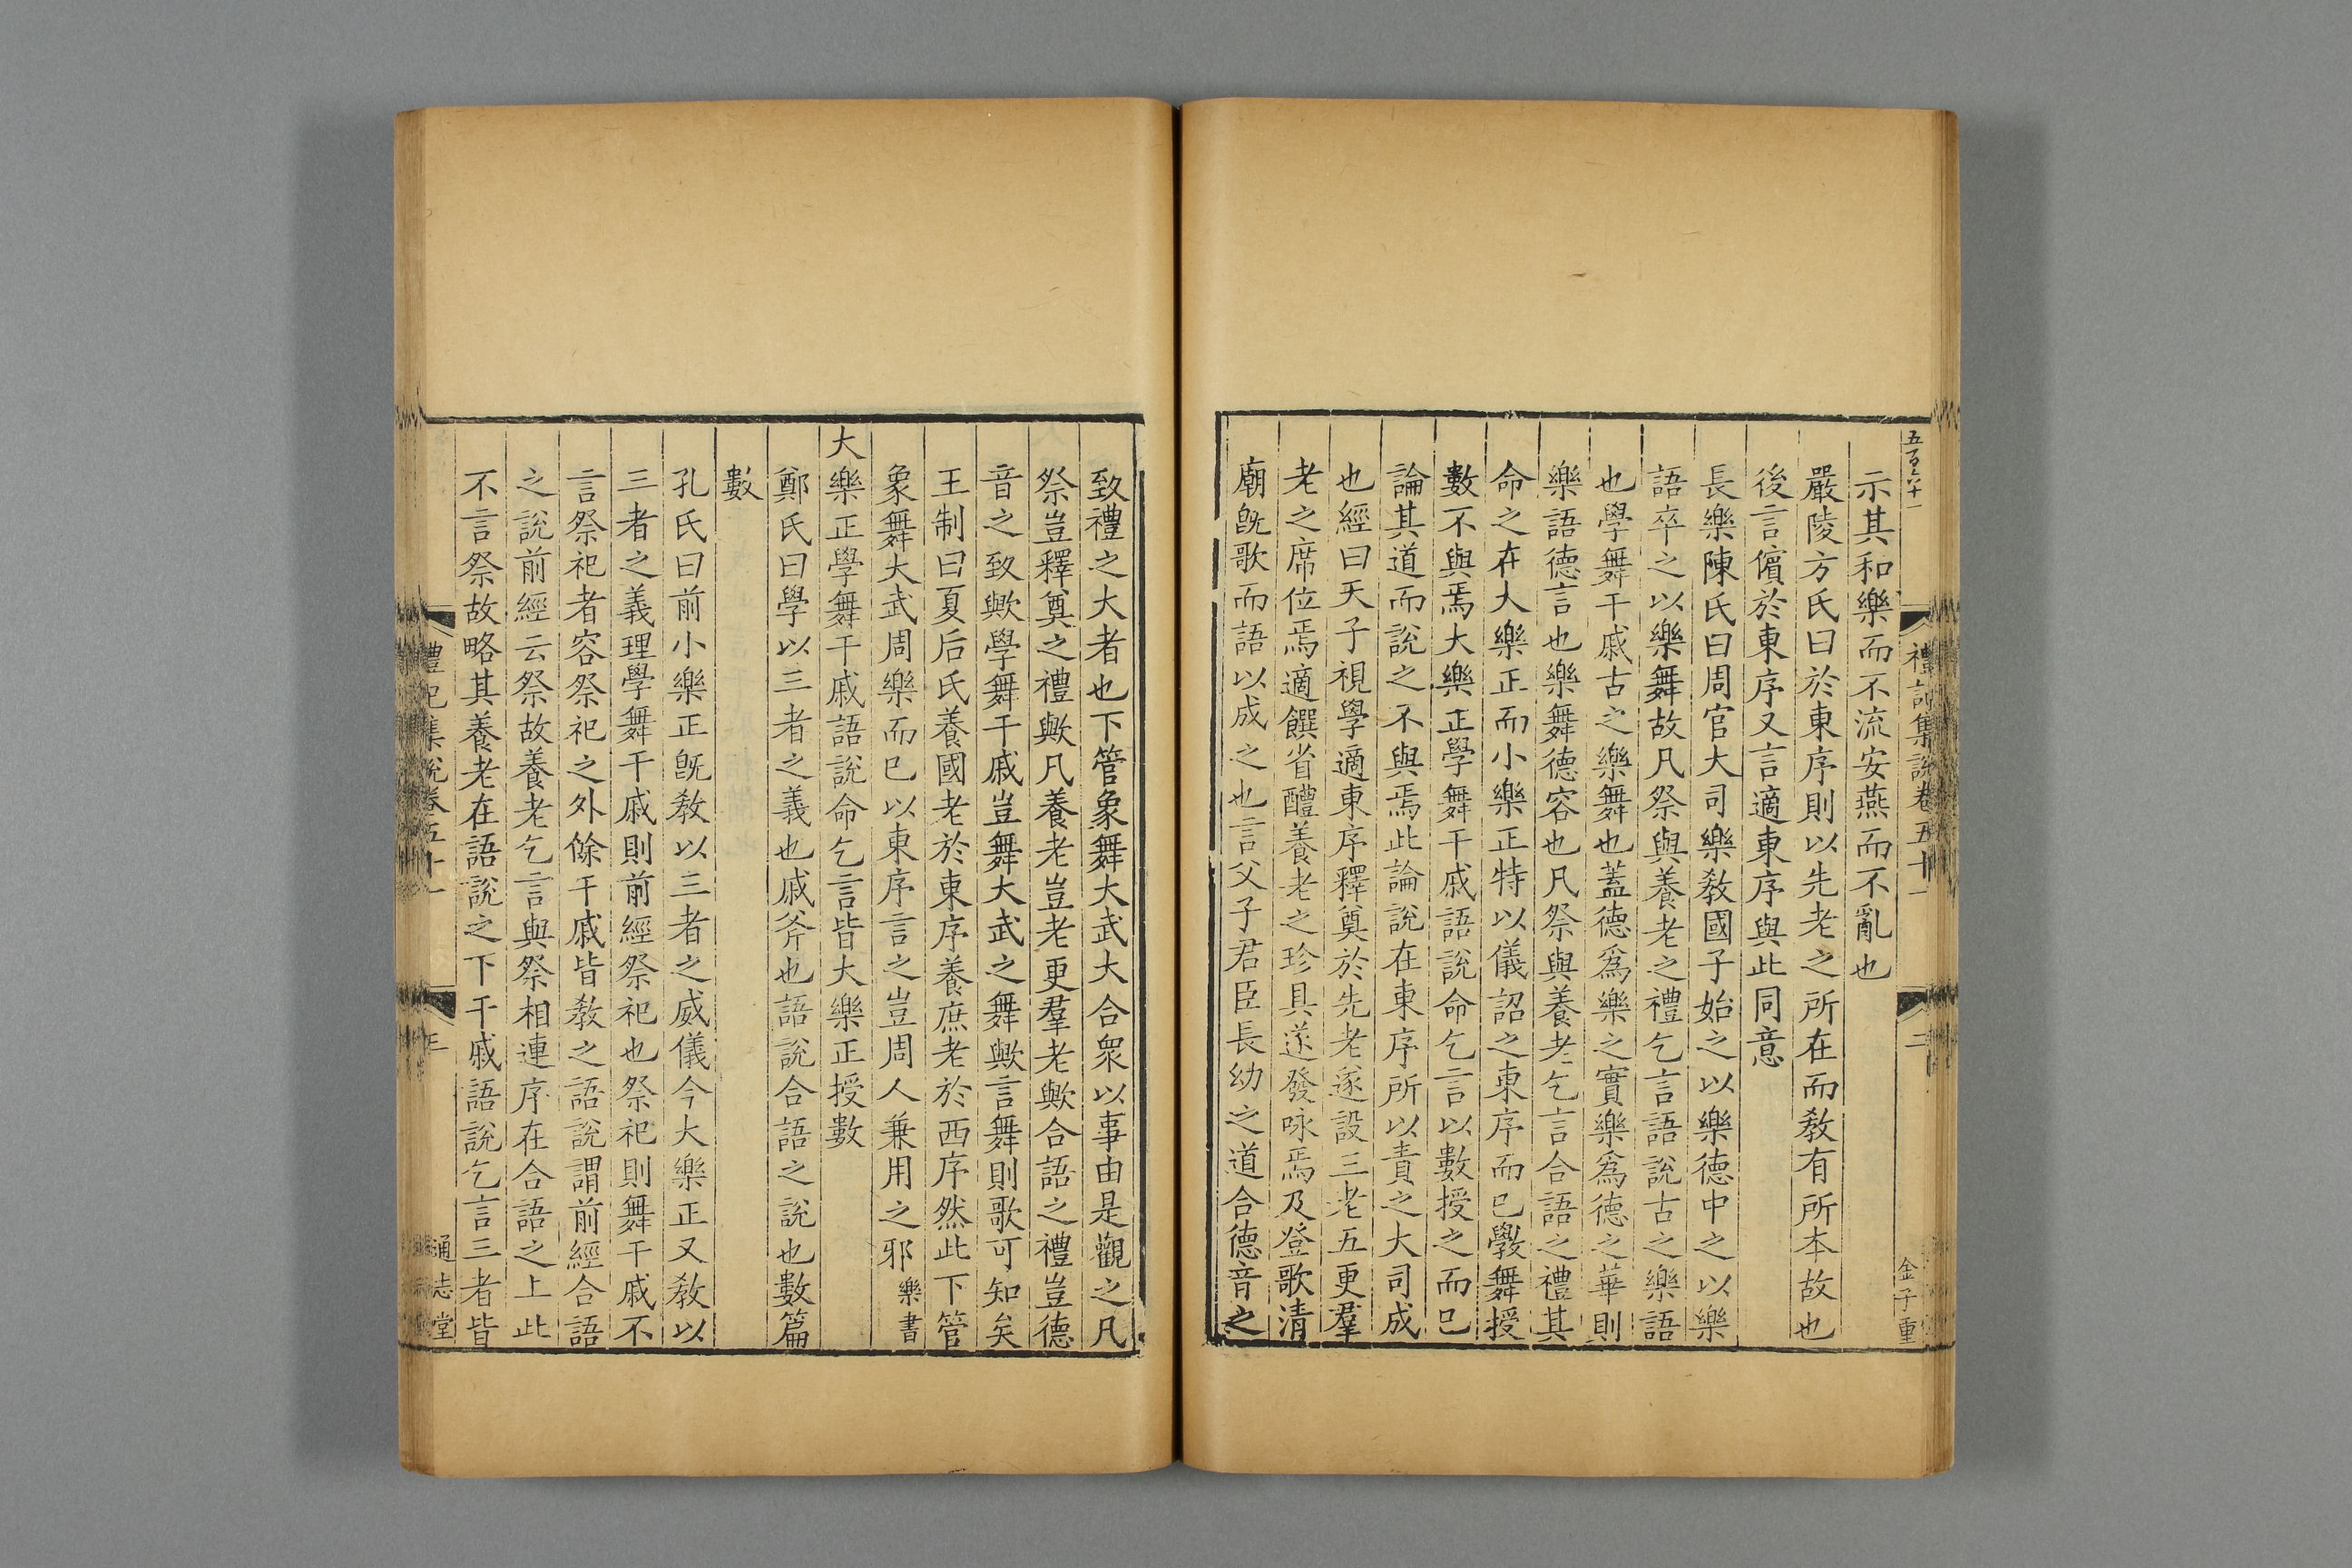 五百六十一
禮記集說卷五十一
二
金子重
示其和樂而不流安燕而不亂也
嚴陵方氏曰於東序則以先老之所在而敎有所本故也
後言儐於東序又言適東序與此同意
長樂陳氏曰周官大司樂敎國子始之以樂德中之以樂
語卒之以樂舞故凡祭與養老之禮乞言語說古之樂語
也學舞干戚古之樂舞也蓋德爲樂之實樂爲德之華則
樂語德言也樂舞德容也凡祭與養老乞言合語之禮其
命之在大樂正而小樂正特以儀詔之東序而已斅舞授
數不與焉大樂正學舞干戚語說命乞言以數授之而已
論其道而說之不與焉此論說在東序所以責之大司成
也經曰天子視學適東序釋奠於先老遂設三老五更羣
老之席位焉適饌省醴養老之珍具遂發咏焉及登歌清
廟旣歌而語以成之也言父子君臣長幼之道合德音之
致禮之大者也下管象舞大武大合衆以事由是觀之凡
祭豈釋奠之禮歟凡養老豈老更羣老歟合語之禮豈德
音之致歟學舞干戚豈舞大武之舞歟言舞則歌可知矣
王制曰夏后氏養國老於東序養庶老於西序然此下管
象舞大武周樂而已以東序言之豈周人兼用之邪樂書
大樂正學舞干戚語說命乞言皆大樂正授數
鄭氏曰學以三者之義也戚斧也語說合語之說也數篇
數
孔氏曰前小樂正旣敎以三者之威儀今大樂正又敎以
三者之義理學舞干戚則前經祭祀也祭祀則舞干戚不
言祭祀者容祭祀之外餘干戚皆敎之語說謂前經合語
之說前經云祭故養老乞言與祭相連序在合語之上此
不言祭故略其養老在語說之下干戚語說乞言三者皆
禮記集說卷五十一
通志堂